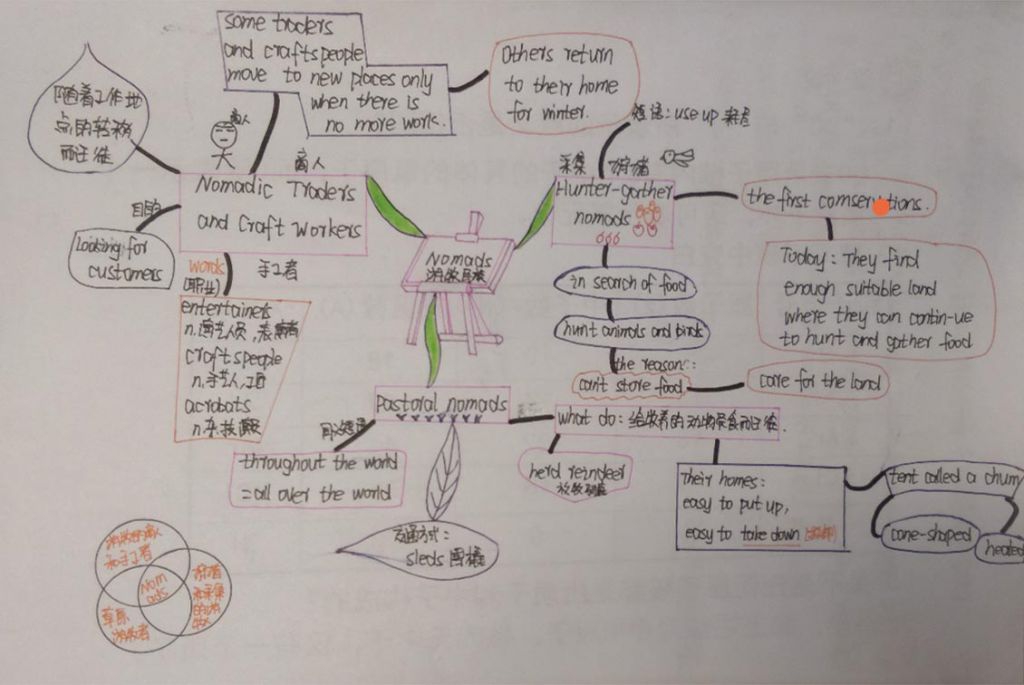 some traders
and craftspeople
move to new places only
when there is
no more work.
Others return
to their home
for winter.
随着工作地
点的转移
而迁徙
商人
商人
Nomadic Traders
and Craft Workers
目的
Looking for
customers
手工者
words
(职业)
entertainers
n.演艺人员,表演者
craftspeople
n.手艺人,工匠
acrobats
n.杂技演员
Nomads
游牧民族
短语:use up 耗尽
采集 狩猎
Hunter-gather
nomads
the first
Today: They find
enough suitable land
where they can contin-ue
to hunt and gather food
in search of food
hunt animals and birds
the reason:
can't store food
care for the land
Pastoral nomads
同义短语
throughout the world
=all over the world
交通方式:
sleds 雪橇
what do: 给牧养的动物觅食而迁徙.
herd reindeer
放牧驯鹿
Their homes:
easy to put up,
easy to take down
tent called a chum
cone-shaped
heated
游牧的商人
和手工者
Nom
ads
狩猎
和采集
的游
牧
草原
游牧者